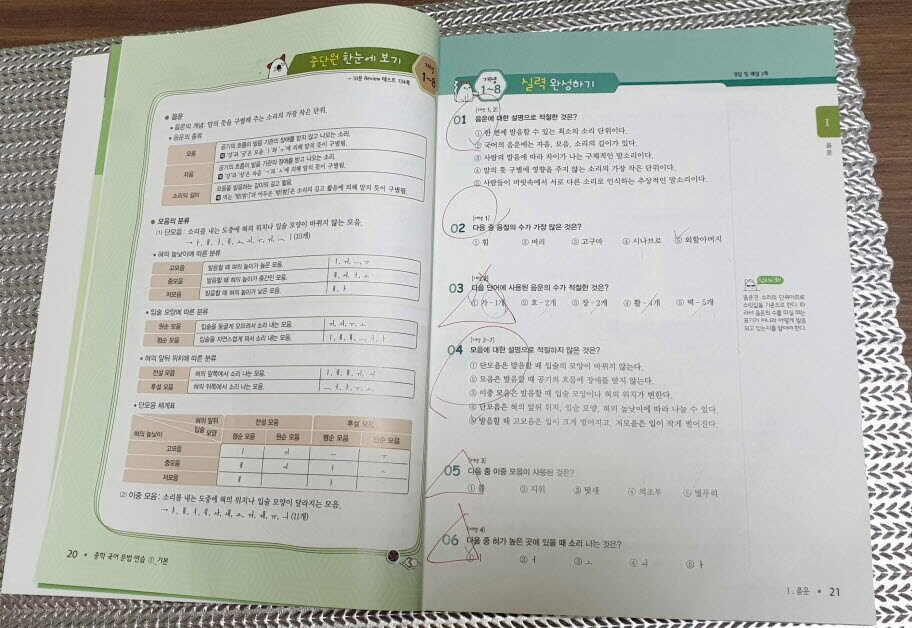 중단원 한눈에 보기
개념 1~8
→ 10분 Review 테스트 134쪽
● 음운
• 음운의 개념: 말의 뜻을 구별해 주는 소리의 가장 작은 단위.
• 음운의 종류
모음
공기의 흐름이 발음 기관의 장애를 받지 않고 나오는 소리.
자음
공기의 흐름이 발음 기관의 장애를 받고 나오는 소리.
소리의 길이
모음을 발음하는 길이의 길고 짧음.
● 모음의 분류
(1) 단모음: 소리를 내는 도중에 혀의 위치나 입술 모양이 바뀌지 않는 모음.
(10개)
• 혀의 높낮이에 따른 분류
고모음 발음할 때 혀의 높이가 높은 모음.
중모음 발음할 때 혀의 높이가 중간인 모음.
저모음 발음할 때 혀의 높이가 낮은 모음.
• 입술 모양에 따른 분류
원순 모음 입술을 둥글게 오므려서 소리 내는 모음.
평순 모음 입술을 자연스럽게 펴서 소리 내는 모음.
• 혀의 앞뒤 위치에 따른 분류
전설 모음 혀의 앞쪽에서 소리 나는 모음.
후설 모음 혀의 뒤쪽에서 소리 나는 모음.
• 단모음 체계표
혀의 앞뒤 전설 모음 후설 모음
입술 모양
혀의 높낮이 평순 모음 원순 모음 평순 모음 원순 모음
고모음 ㅣ ㅟ ㅡ ㅜ
중모음 ㅔ ㅚ ㅓ ㅗ
저모음 ㅐ ㅏ
(2) 이중 모음: 소리를 내는 도중에 혀의 위치나 입술 모양이 달라지는 모음.
(11개)
20 • 중학 국어 문법 연습 ①_기본
정답 및 해설 2쪽
개념 1~8
실력 완성하기
I
음운
[개념 1, 2]
01 음운에 대한 설명으로 적절한 것은?
① 한 번에 발음할 수 있는 최소의 소리 단위이다.
② 국어의 음운에는 자음, 모음, 소리의 길이가 있다.
③ 사람의 발음에 따라 차이가 나는 구체적인 말소리이다.
④ 말의 뜻 구별에 영향을 주지 않는 소리의 가장 작은 단위이다.
⑤ 사람들이 머릿속에서 서로 다른 소리로 인식하는 추상적인 말소리이다.
[개념 1]
02 다음 중 음절의 수가 가장 많은 것은?
① 힘 ② 머리 ③ 고구마 ④ 시나브로 ⑤ 외할아버지
03 다음 단어에 사용된 음운의 수가 적절한 것은?
① 카-1개 ② 호-2개 ③ 장-2개 ④ 활-4개 ⑤ 벽-5개
'음운'은 소리의 단위이므로
소릿값을 기준으로 한다. 따
라서 음운의 수를 따질 때는
표기가 아니라 어떻게 발음
되고 있는지를 알아야 한다.
[개념 2~7]
04 모음에 대한 설명으로 적절하지 않은 것은?
① 단모음은 발음할 때 입술의 모양이 바뀌지 않는다.
② 모음은 발음할 때 공기의 흐름에 장애를 받지 않는다.
③ 이중 모음은 발음할 때 입술 모양이나 혀의 위치가 변한다.
④ 단모음은 혀의 앞뒤 위치, 입술 모양, 혀의 높낮이에 따라 나눌 수 있다.
⑤ 발음할 때 고모음은 입이 크게 벌어지고, 저모음은 입이 작게 벌어진다.
[개념 3]
05 다음 중 이중 모음이 사용된 것은?
① 틀 ② 지위 ③ 텃새 ④ 외조부 ⑤ 별무리
[개념 4]
06 다음 중 혀가 높은 곳에 있을 때 소리 나는 것은?
① ㅣ ② ㅓ ③ ㅗ ④ ㅚ ⑤ ㅏ
I. 음운 • 21